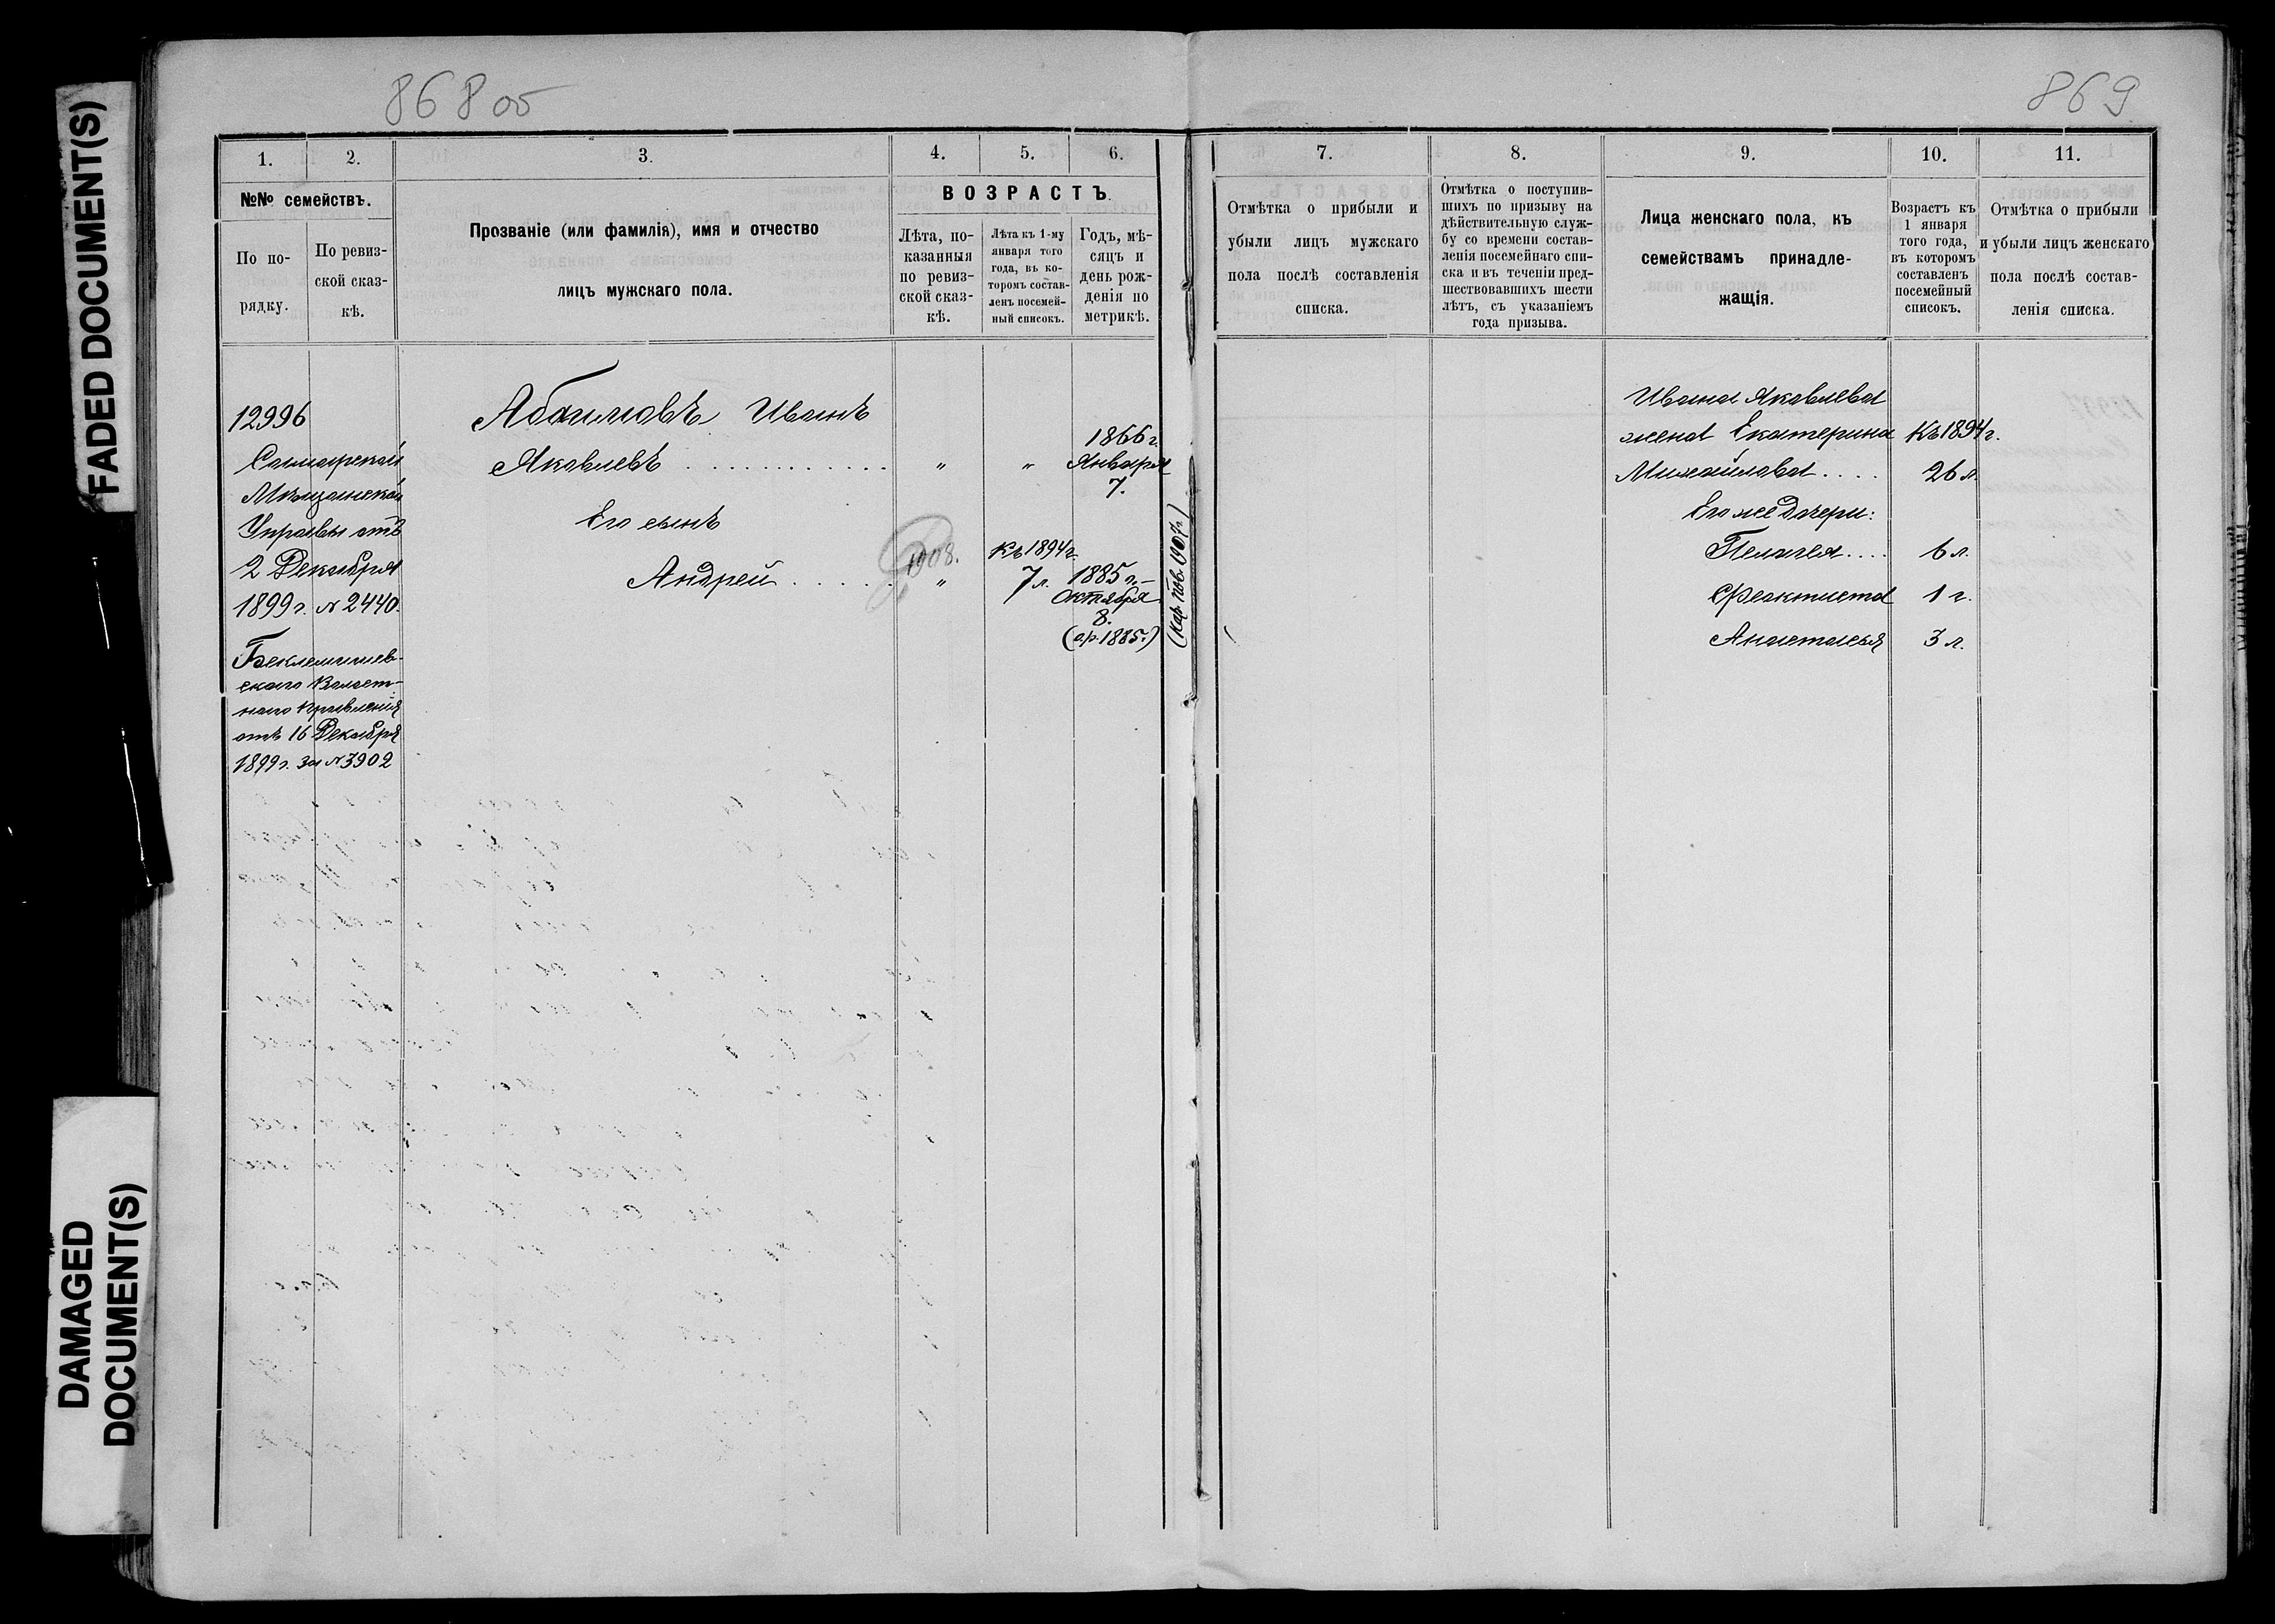 FADED DOCUMENT(S)
DAMAGED
DOCUMENT(S)
868 об
869
1. 2. 3. 4. 5. 6.
№№ семействъ.
По по-
рядку.
По ревиз-
ской сказ-
кѣ.
Прозваніе (или фамилія), имя и отчество
лицъ мужскаго пола.
ВОЗРАСТЪ.
Лѣта, по-
казанныя
по ревиз-
ской сказ-
кѣ.
Лѣта къ 1-му
января того
года, въ ко-
торомъ состав-
ленъ посемей-
ный списокъ.
Годъ, мѣ-
сяцъ и
день рож-
денія по
метрикѣ.
7. 8. 9. 10. 11.
Отмѣтка о прибыли и
убыли лицъ мужскаго
пола послѣ составленія
списка.
Отмѣтка о поступив-
шихъ по призыву на
дѣйствительную служ-
бу со времени состав-
ленія посемейнаго спи-
ска и въ теченіи пред-
шествовавшихъ шести
лѣтъ, съ указаніемъ
года призыва.
Лица женскаго пола, къ
семействамъ принадле-
жащія.
Возрастъ къ
1 января
того года,
въ которомъ
составленъ
посемейный
списокъ.
Отмѣтка о прибыли
и убыли лицъ женскаго
пола послѣ состав-
ленія списка.
12996
Самарской
Мѣщанской
Управы отъ
2 Декабря
1899 г. № 2440.
Беклемишев-
скаго Волост-
наго Правленія
отъ 16 Декабря
1899 г. за № 3902
Абаимовъ Иванъ
Яковлевъ . . . . . . . . . . . . „ „
1866 г.
Января
7.
Его сынъ
Андрей . . . . . „
1908.
Къ 1894 г.
7 л.
1885 г.
Октября
8.
(ар. 1885.)
Ивана Яковлева
жена Екатерина Къ 1894 г.
Михайлова . . . . 26 л.
Его же дочери:
Пелагея . . . . 6 л.
Феоктиста 1 г.
Анастасья 3 л.